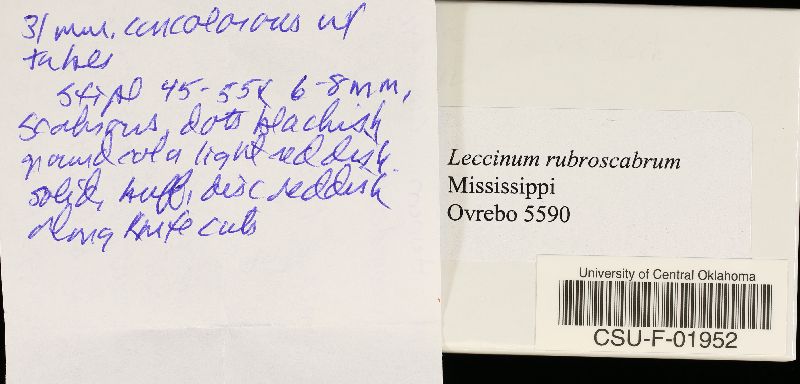 31 mm, concolorous w/
tubes
Stipe 45-55 x 6-8 mm,
scabrous, dots blackish
ground color light reddish
solid, buff, disc reddish
along knife cuts
Leccinum rubroscabrum
Mississippi
Ovrebo 5590
University of Central Oklahoma
CSU-F-01952